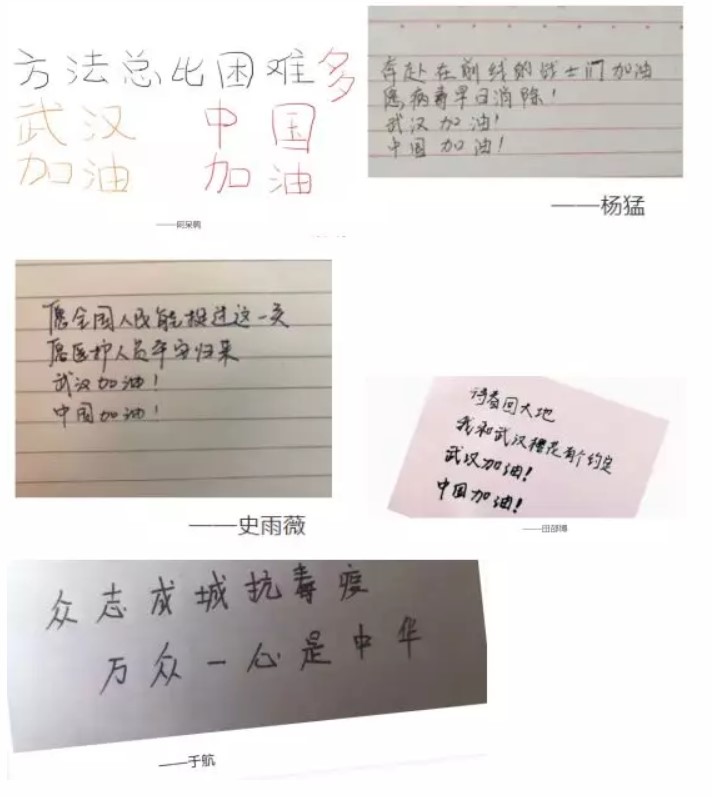 方法总比困难多
武汉 中国
加油 加油
——阿呆鹅
奔赴在前线的战士们加油
愿病毒早日消除!
武汉加油!
中国加油!
——杨猛
愿全国人民能挺过这一关
愿医护人员平安归来
武汉加油!
中国加油!
——史雨薇
待春回大地
我和武汉樱花有个约定
武汉加油!
中国加油!
众志成城抗毒疫
万众一心是中华
——于航